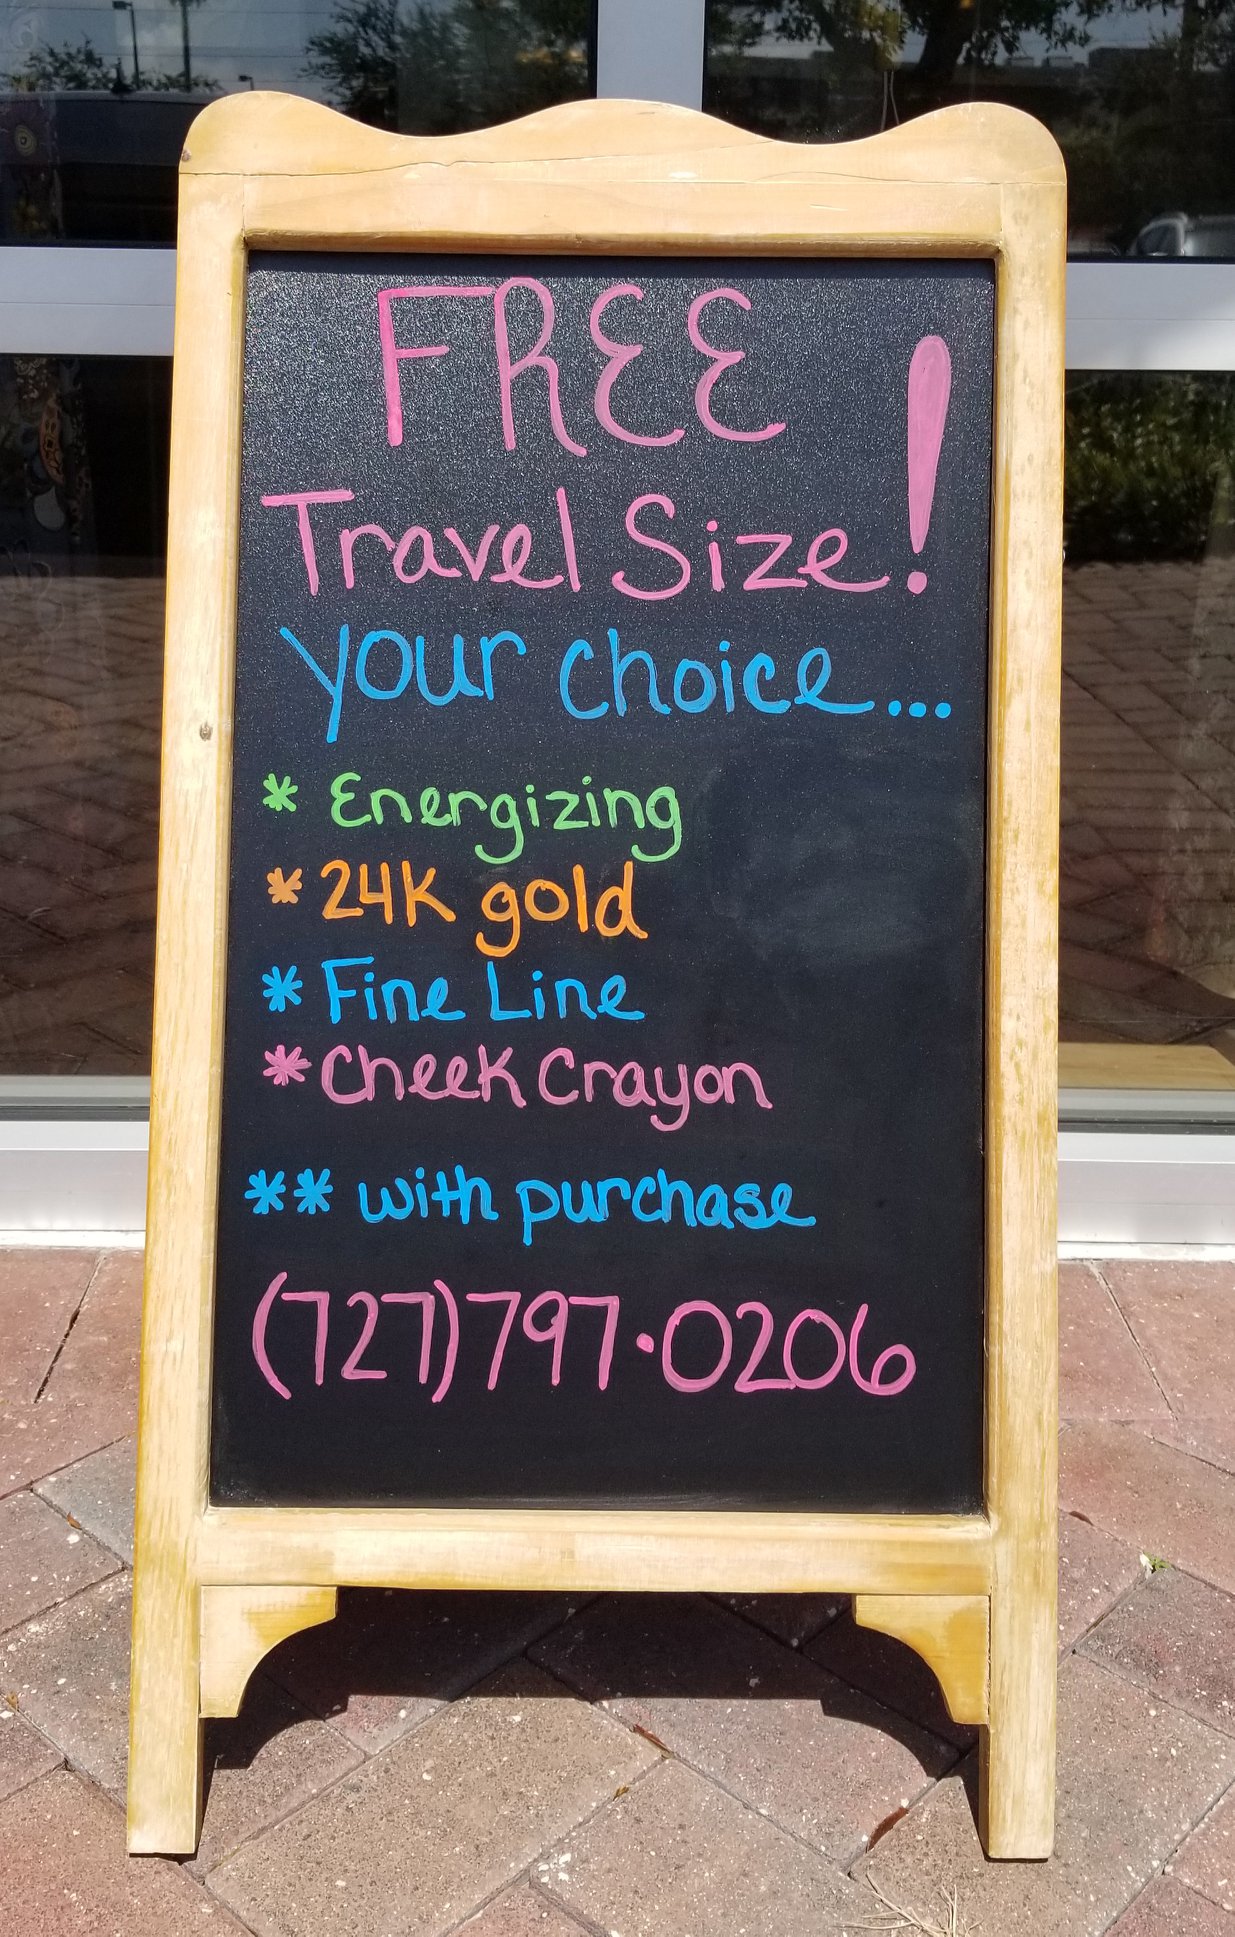 FREE
Travel Size!
your choice...
* Energizing
* 24K gold
* Fine Line
* Cheek Crayon
** with purchase
(727)797·0206